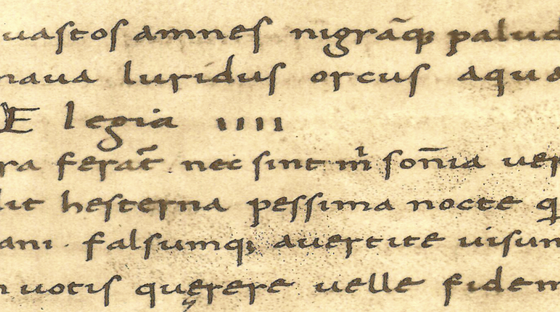 uastos amnes nigrāq; palud
naua luridus orcus aqua
Elegia IIII
ra ferāt nec sint m̄ som̄a uer
lit hesterna pessima nocte q
ani falsumq; auertite uisum
uotis quęrere uelle fidem